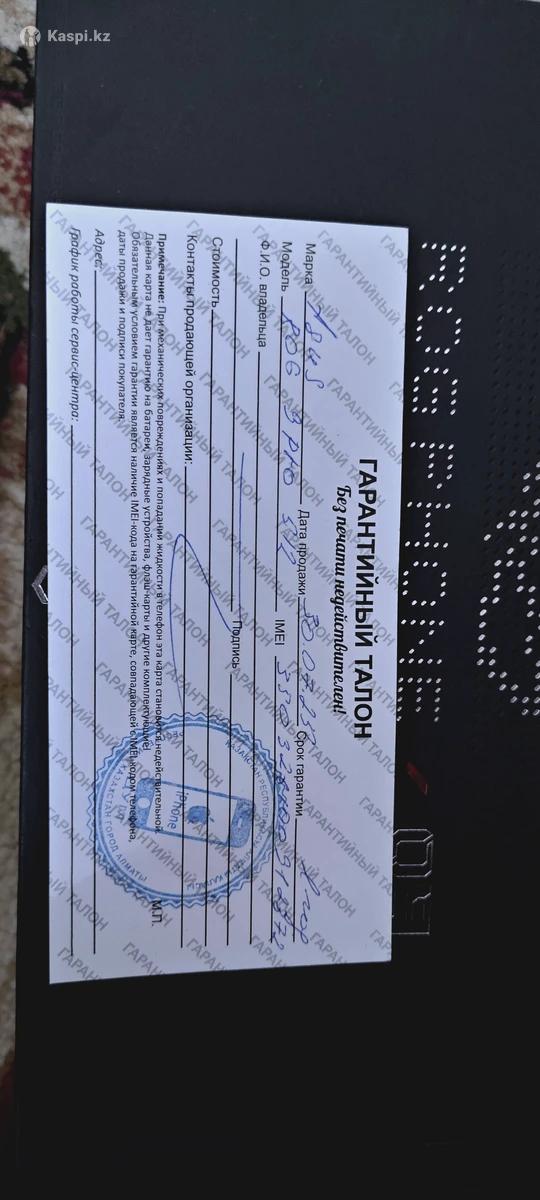 Kaspi.kz
ROG PHONE
03
ГАРАНТИЙНЫЙ ТАЛОН
Без печати недействителен!
Марка Asus Дата продажи Срок гарантии
Модель ROG 3 PRO 512 IMEI
Ф.И.О. владельца
Подпись
Стоимость
Контакты продающей организации:
М.П.
Примечание: При механических повреждениях и попадании жидкости в телефон эта карта становится недействительной.
Данная карта не дает гарантию на батареи, зарядные устройства, флэш-карты и другие комплектующие!
Обязательным условием гарантии является наличие IMEI-кода на гарантийной карте, совпадающей с IMEI-кодом телефона,
даты продажи и подписи покупателя.
Адрес:
График работы сервис-центра:
iPhone
КАЗАХСТАН ГОРОД АЛМАТЫ